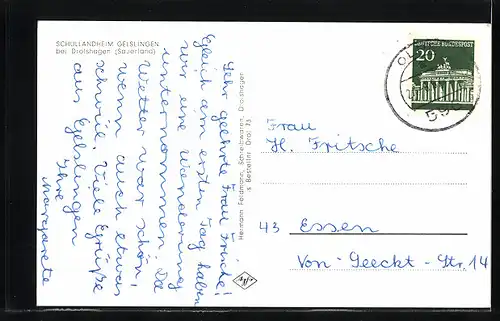 SCHULLANDHEIM GELSLINGEN
bei Drolshagen (Sauerland)
Sehr geehrte Frau Fritsche!
Gleich am ersten Tag haben
wir eine Wanderung
unternommen. Das
Wetter war schön,
wenn auch etwas
schwül. Viele Grüße
aus Gelslingen
Ihre
Margarete
Hermann Feldmann, Schreibwaren, Drolshagen
Bestellnr. Drol 73
DEUTSCHE BUNDESPOST
20
OL
Frau
H. Fritsche
43 Essen
Von-Geeckt-Str. 14